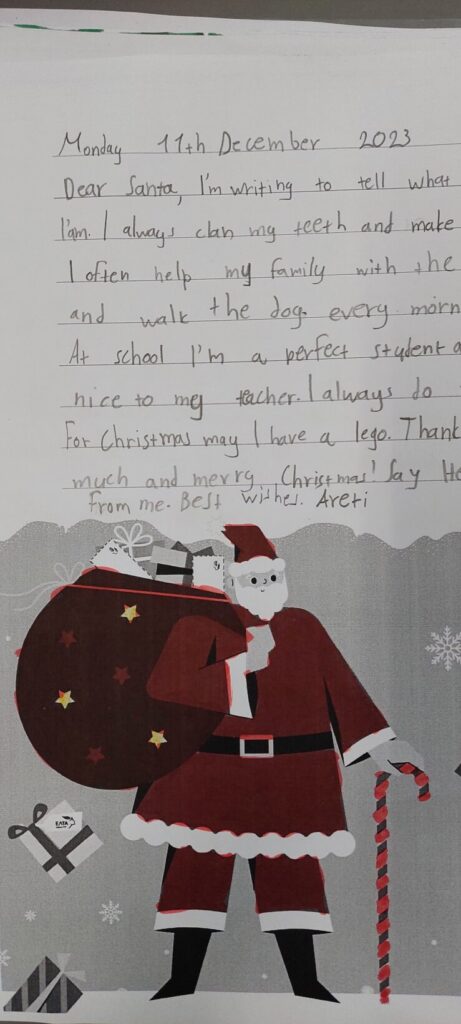 Monday 11th December 2023
Dear Santa, I'm writing to tell what
I'am. I always clan my teeth and make
I often help my family with the
and walk the dog. every morn
At school I'm a perfect student a
nice to my teacher. I always do
For Christmas may I have a lego. Thank
much and merry Christmas! Say He
from me. Best wishes. Areti
ΕΛΤΑ